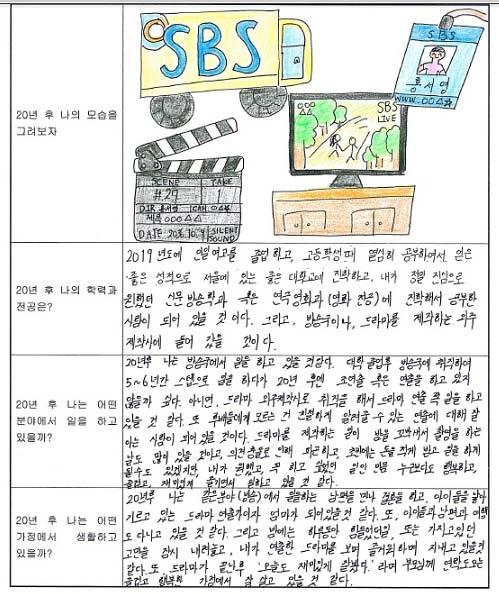 20년 후 나의 모습을
그려보자
SBS
SBS
홍서영
WWW.○○△☆
SBS
LIVE
SCENE
TAKE
#.29
1
DIR 홍서영
CAM ○△☆
제목 ○○○△△
DATE
SILENT
SOUND
20년 후 나의 학력과
전공은?
2019년도에 여고를 졸업하고, 고등학생때 열심히 공부하여서 얻은
좋은 성적으로 서울에 있는 좋은 대학교에 진학하고, 내가 정말 진심으로
원했던 신문방송학과 혹은 연극영화과 (영화 전공)에 진학해서 공부한
사람이 되어 있을 것이다. 그리고, 방송국이나, 드라마를 제작하는 외주
제작사에 들어 갔을 것이다.
20년 후 나는 어떤
분야에서 일을 하고
있을까?
20년후 나는 방송국에서 일을 하고 있을 것 같다. 대학 졸업후 방송국에 취직하여
5~6년간 스텝으로 일을 하다가 20년 후엔 조연출 혹은 연출을 하고 있지
않을까 싶다. 아니면, 드라마 외주제작사로 취직을 해서 드라마 연출 쪽 일을 하고
있을 것 같다. 또 후배들에게 모르는 건 친절하게 알려줄 수 있는 연출에 대해 잘
아는 사람이 되어 있을 것이다. 드라마를 제작하는 일이 밤을 꼬박새서 촬영을 하는
날도 많이 있을 것이고, 의견 충돌로 인해 피곤하고, 초반에는 돈을 적게 받고 일을 하게
될수도 있겠지만, 내가 원했고, 꼭 하고 싶었던 일인 만큼 누구보다도 행복하고,
즐겁고, 재미있게 즐기면서 일하고 있을 것 같다.
20년 후 나는 어떤
가정에서 생활하고
있을까?
20년후 나는 같은분야 (방송)에서 일하는 남편을 만나 결혼을 하고, 아이들을 낳아
기르고 있는 드라마 연출가이자 엄마가 되어있을것 같다. 또, 아이들과 남편과 여행
도 다니고 있을 것 같다. 그리고 밤에는 하루동안 힘들었던일, 또는 가지고있던
고민을 잠시 내려놓고, 내가 연출한 드라마를 보며 즐거워하며 지내고 있을것
같다. 또, 드라마가 끝나후 '오늘도 재미있게 잘봤다.' 라며 부모님께 연락도오는
즐겁고 행복한 가정에서 잘 살고 있을 것 같다.